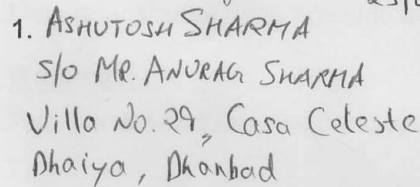 1. ASHUTOSH SHARMA
S/o MR. ANURAG SHARMA
Villa No. 29, Casa Celeste
Dhaiya, Dhanbad